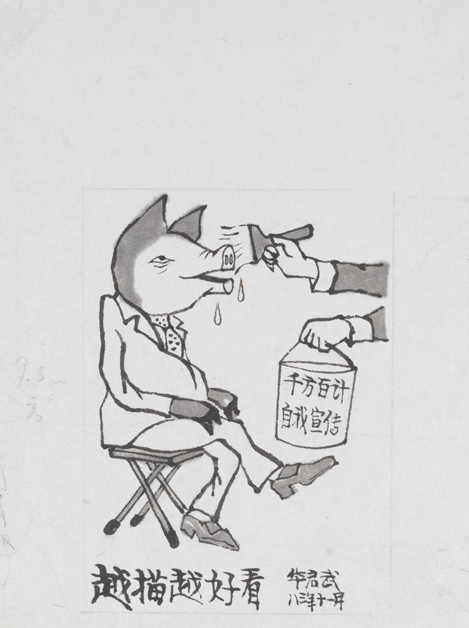 千方百计
自我宣传
越描越好看
华君武
八三年十一月
9.5